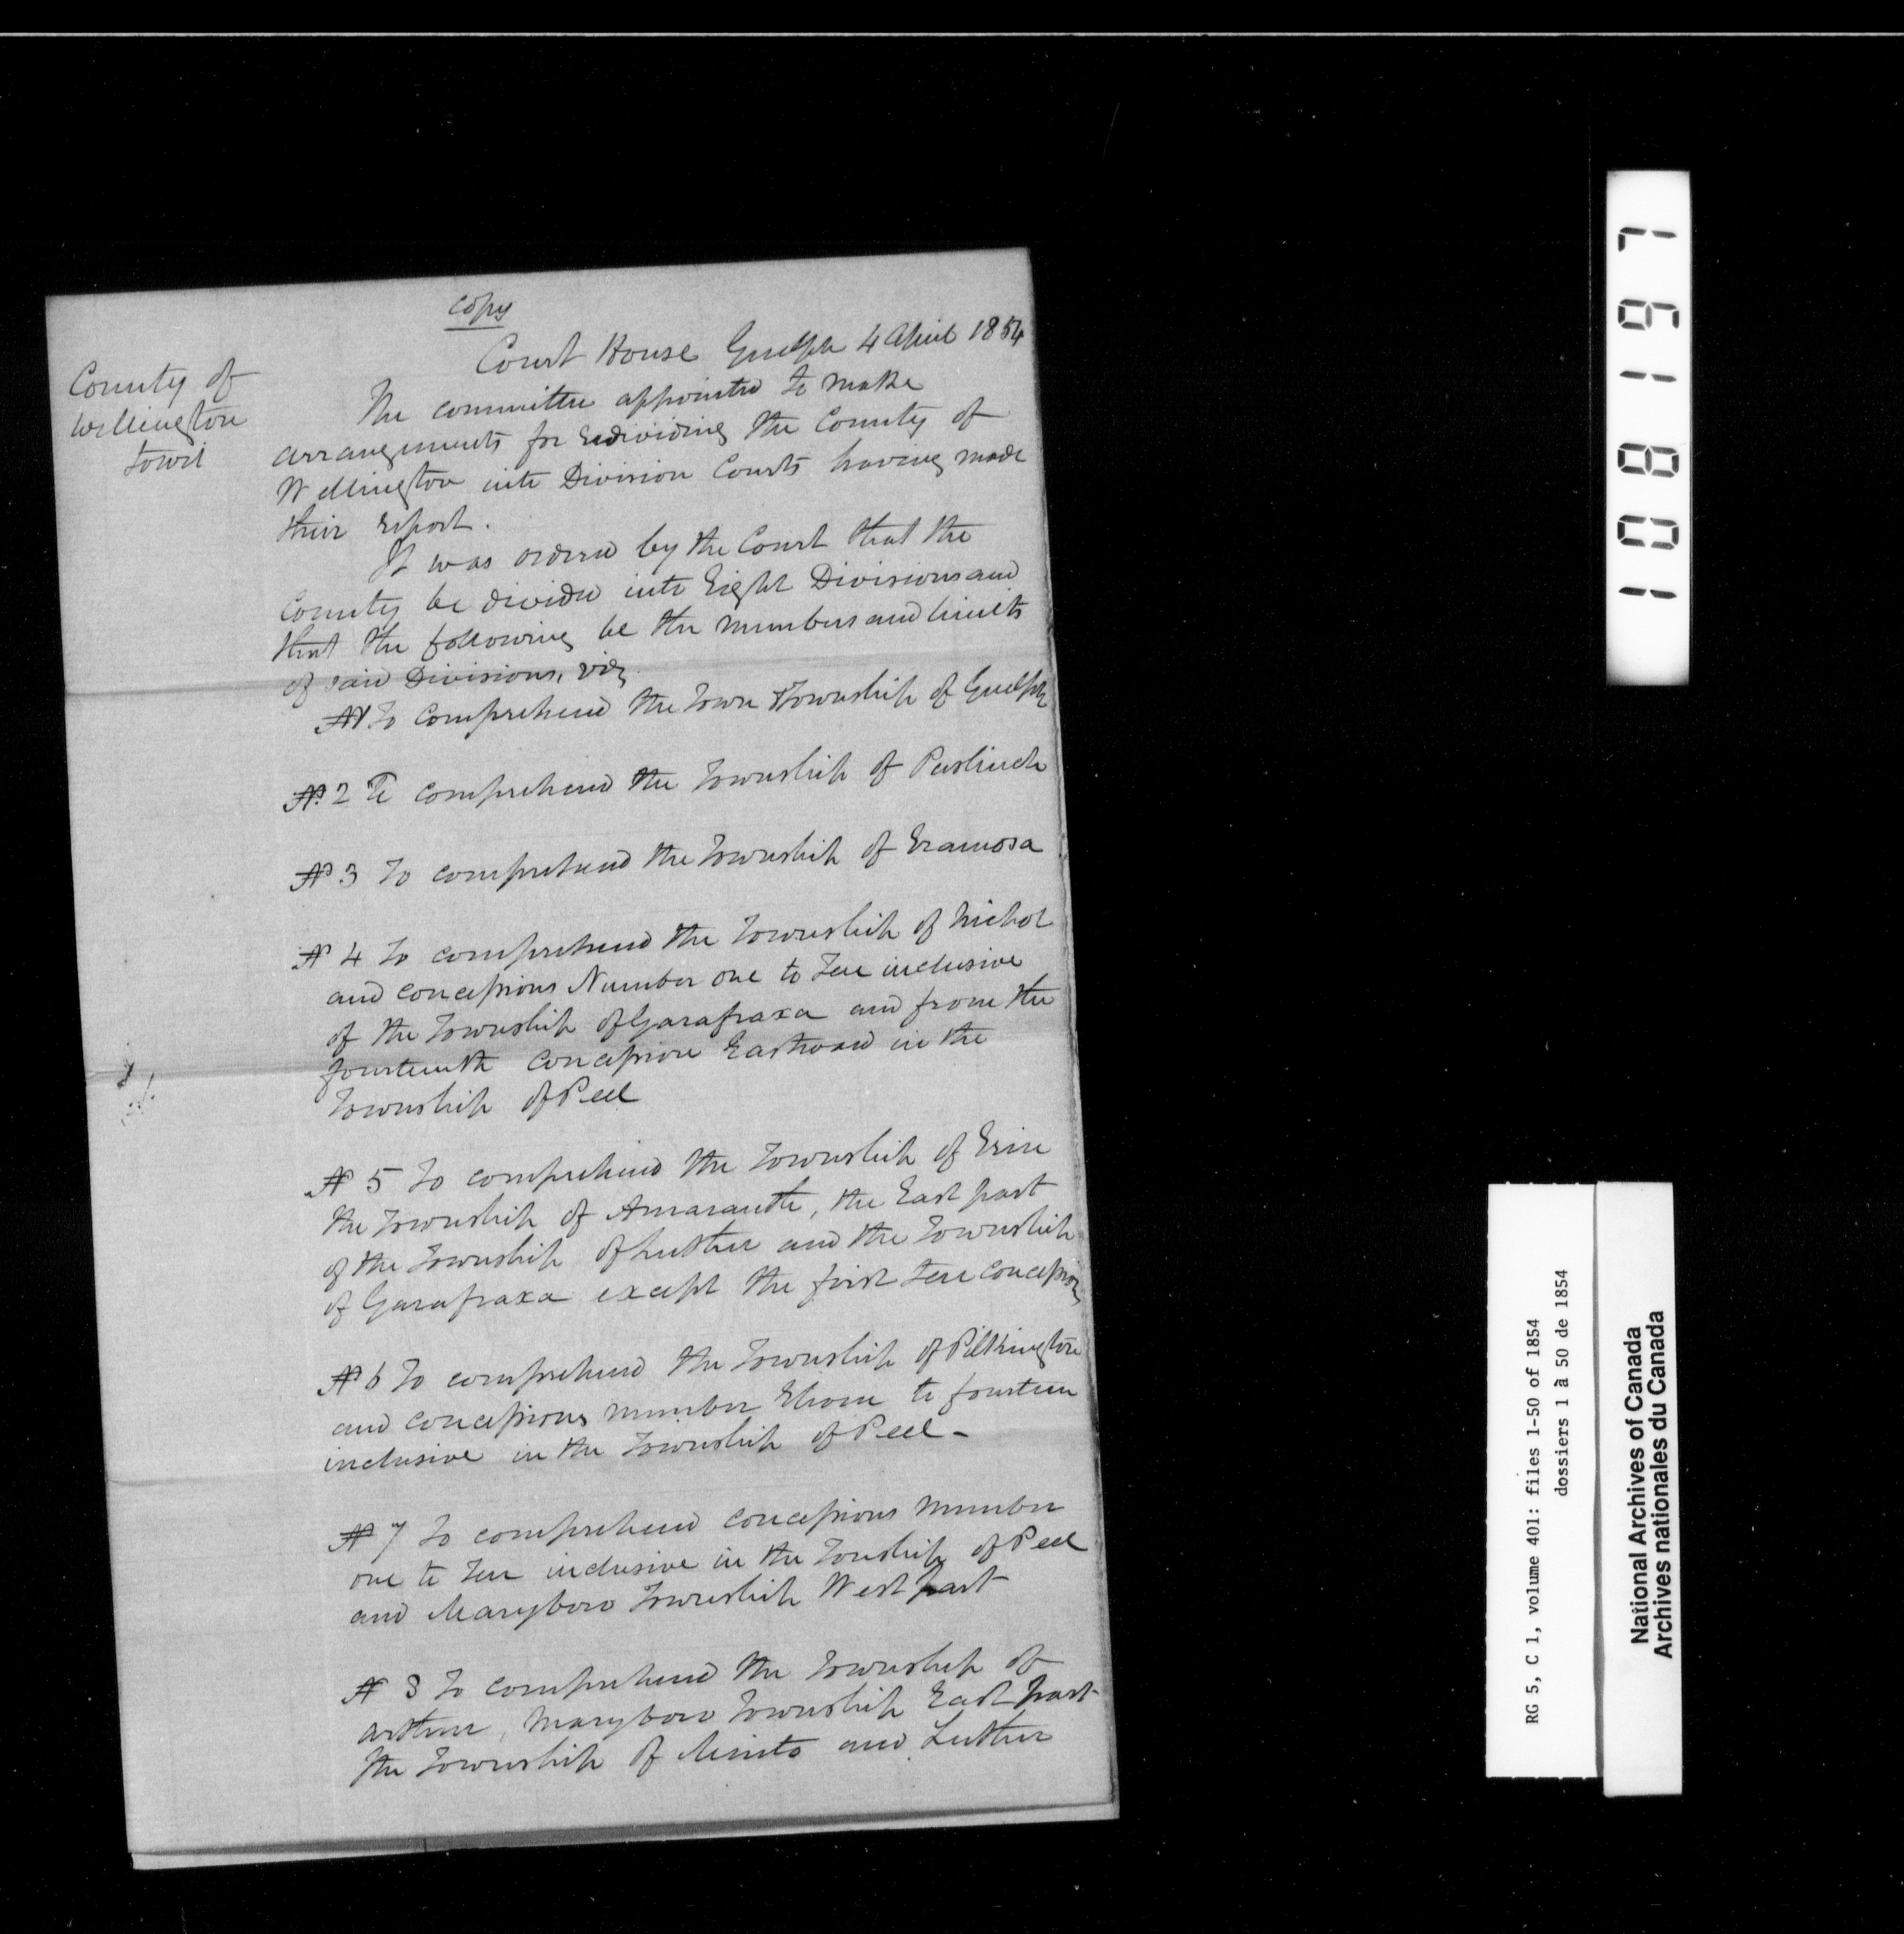 Copy
Court House Guelph 4 April 1854
County of
Wellington
towit
The committee appointed to make
arrangements for redividing the County of
Wellington into Division Courts having made
their report.
It was ordered by the Court that the
County be divided into Eight Divisions and
that the following be the numbers and limits
of said Divisions, viz
No 1 To comprehend the Town & Township of Guelph
No. 2 To comprehend the Township of Puslinch
No 3 To comprehend the Township of Eramosa
No 4 To comprehend the Township of Nichol
and concessions Number one to Ten inclusive
of the Township of Garafraxa and from the
fourteenth concession Eastward in the
Township of Peel
No 5 To comprehend the Township of Erin
the Township of Amaranth, the East part
of the Township of Luther and the Township
of Garafraxa except the first ten concessions
No 6 To comprehend the Township of Pilkington
and concessions number Eleven to fourteen
inclusive in the Township of Peel -
No 7 To comprehend concessions number
one to Ten inclusive in the Township of Peel
and Maryboro Township West part
No 8 To comprehend the Township of
Arthur, Maryboro Township East part
the Township of Minto and Luther
108197
RG 5, C 1, volume 401: files 1-50 of 1854
dossiers 1 à 50 de 1854
National Archives of Canada
Archives nationales du Canada